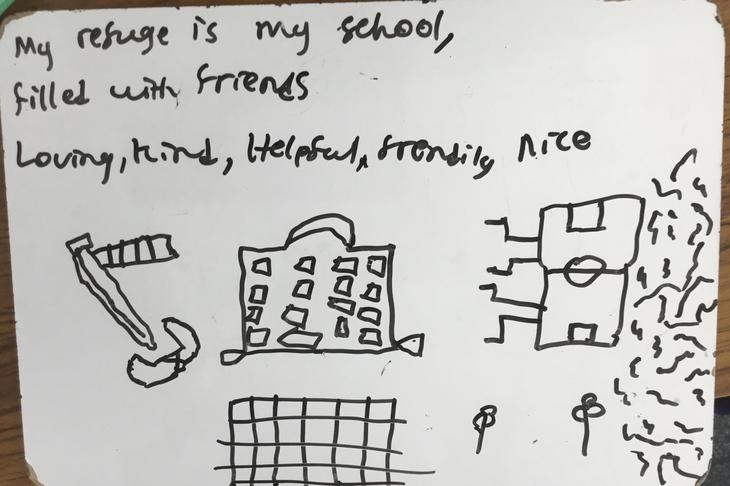 My refuge is my school,
filled with friends
Loving, Kind, Helpful, frendily nice